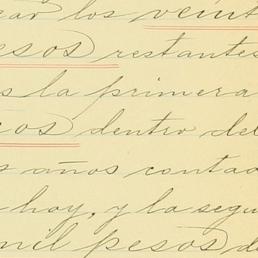 gar los veint
esos restantes
s la primera
cos dentro del
s años contad
hoy, y la segu
mil pesos d